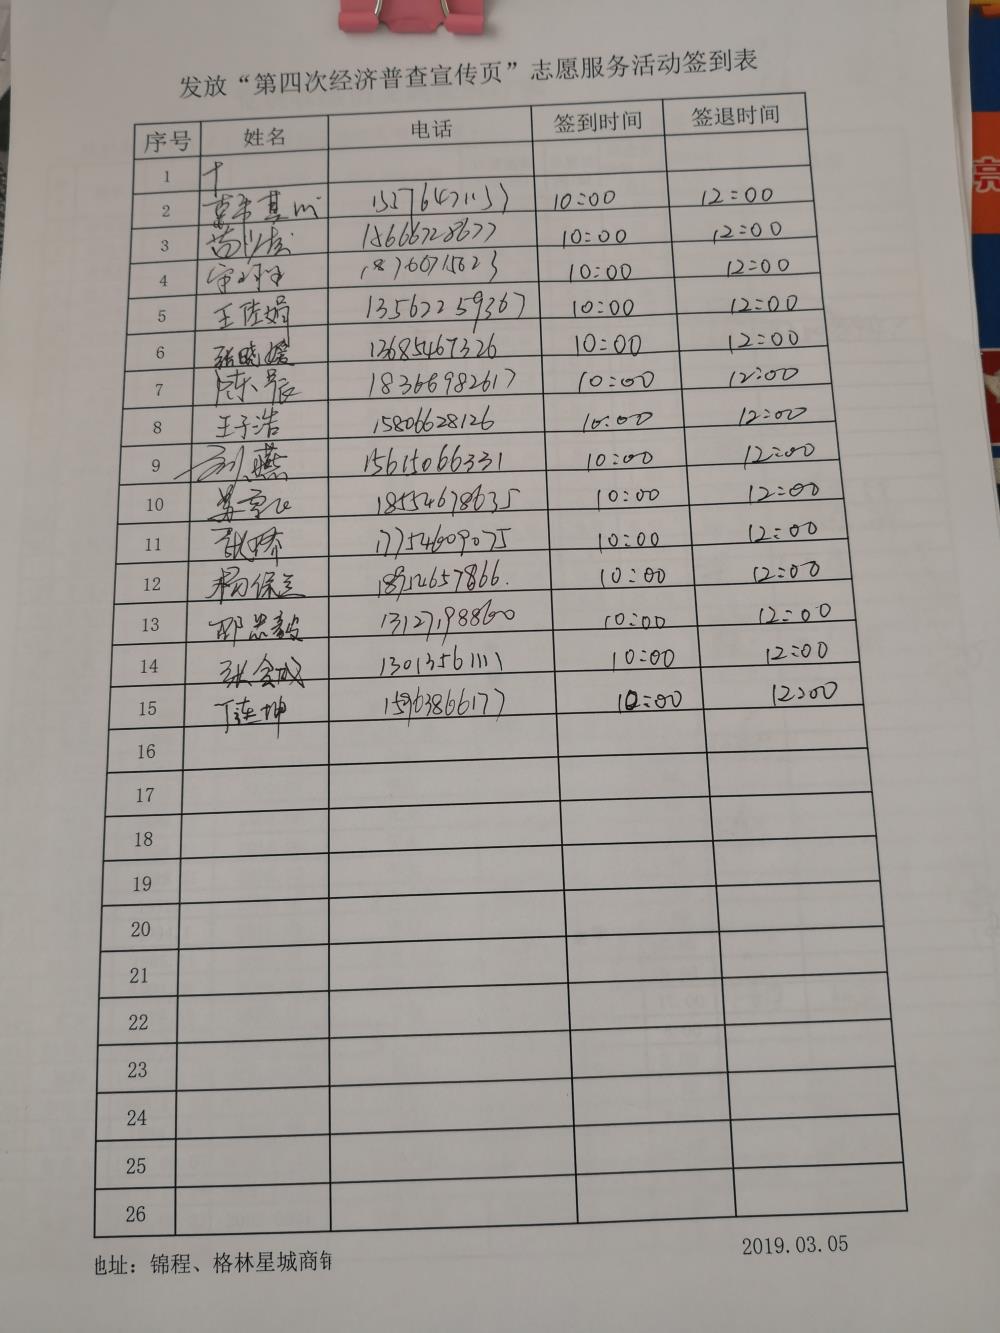 发放“第四次经济普查宣传页”志愿服务活动签到表
序号 姓名 电话 签到时间 签退时间
1
2 10:00 12:00
3 15666728677 10:00 12:00
4 10:00 12:00
5 王佳娟 13562259367 10:00 12:00
6 张晓媛 13685467326 10:00 12:00
7 陈晨 18366982617 10:00 12:00
8 王子浩 15806628126 10:00 12:00
9 刘燕 15615066331 10:00 12:00
10 18554678635 10:00 12:00
11 张娇 17754609075 10:00 12:00
12 杨保兰 18954657866. 10:00 12:00
13 10:00 12:00
14 13013561111 10:00 12:00
15 丁连坤 15963866177 10:00 12:00
16
17
18
19
20
21
22
23
24
25
26
地址：锦程、格林星城商铺
2019.03.05